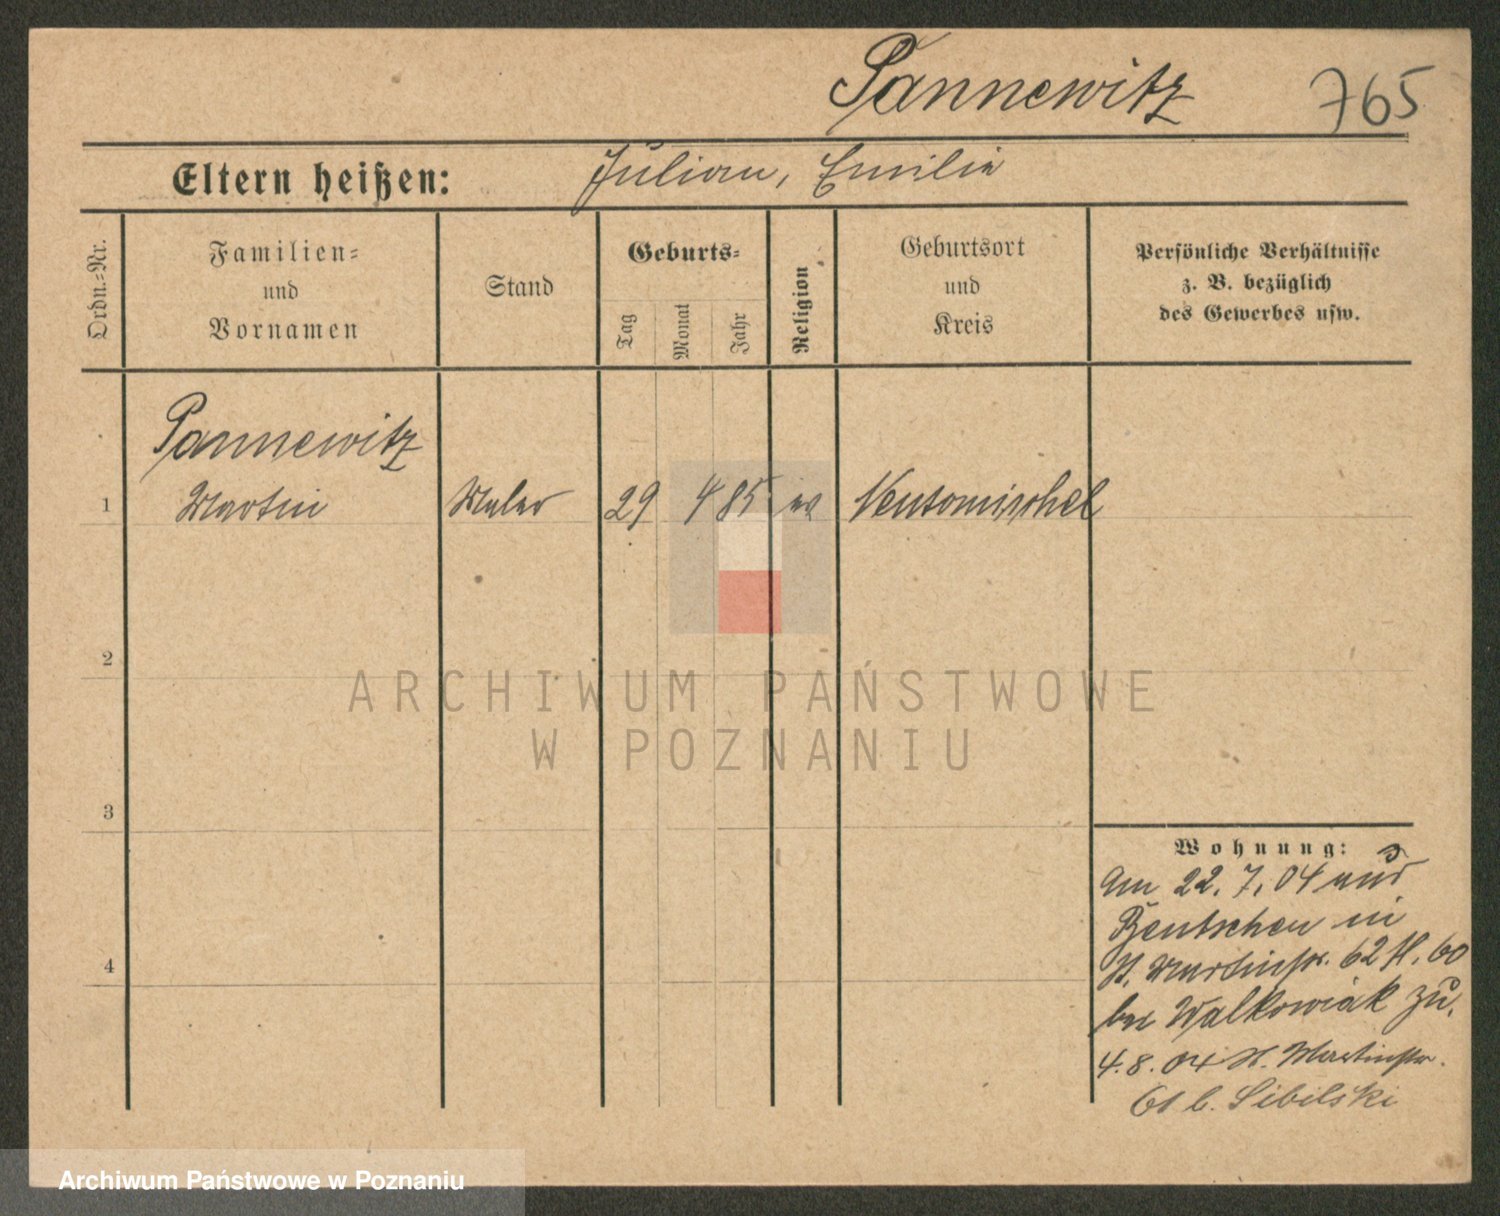 Pannewitz 765
Eltern heißen: Julian, Emilie
Ordn.-Nr.
Familien-
und
Vornamen
Stand
Geburts-
Tag
Monat
Jahr
Religion
Geburtsort
und
Kreis
Persönliche Verhältnisse
z. B. bezüglich
des Gewerbes usw.
Pannewitz
1 Martin Maler 29 4 85 Neutomischel
2
3
4
Wohnung:
Am 22. 7. 04 aus
Bentschen in
St. Martinstr. 62 H. 60
bei Walkowiak zu.
4. 8. 04 St. Martinstr.
61 b. Sibilski
ARCHIWUM PAŃSTWOWE
W POZNANIU
Archiwum Państwowe w Poznaniu